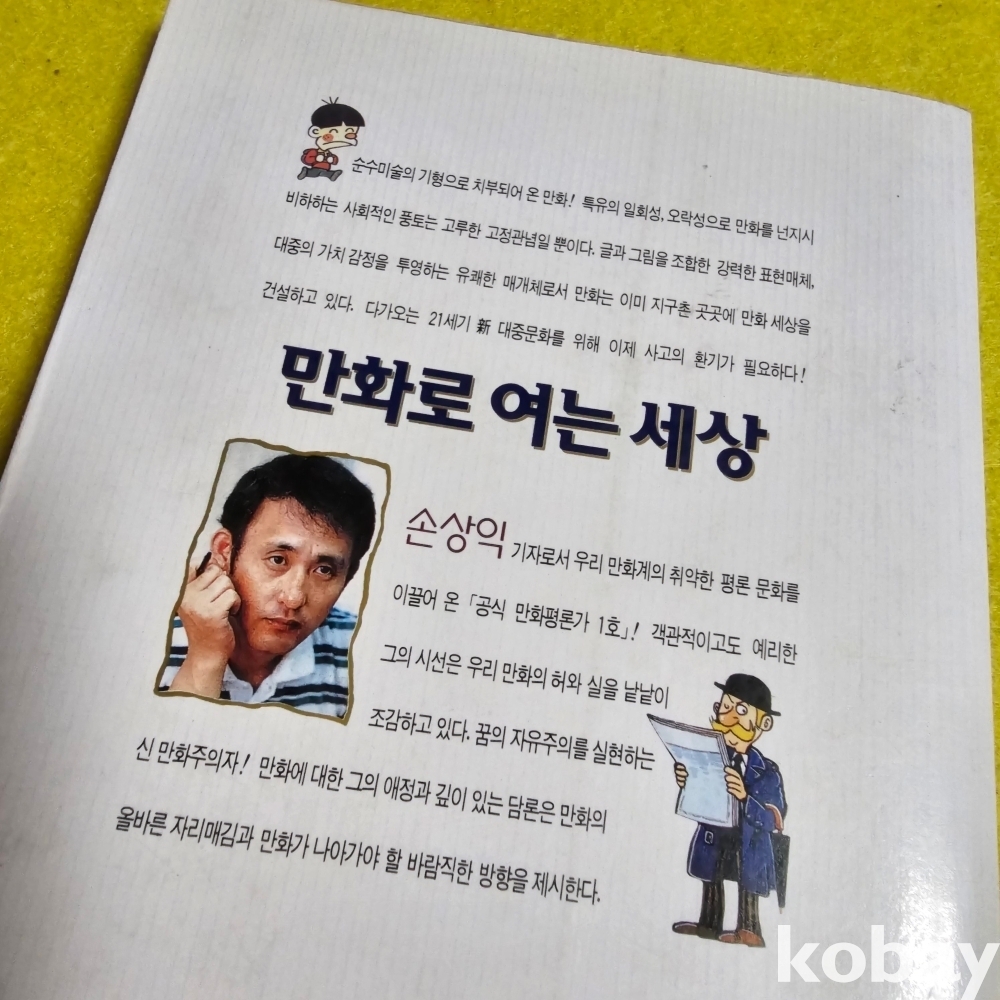 순수미술의 기형으로 치부되어 온 만화! 특유의 일회성, 오락성으로 만화를 넌지시
비하하는 사회적인 풍토는 고루한 고정관념일 뿐이다. 글과 그림을 조합한 강력한 표현매체,
대중의 가치 감정을 투영하는 유쾌한 매개체로서 만화는 이미 지구촌 곳곳에 만화 세상을
건설하고 있다. 다가오는 21세기 新 대중문화를 위해 이제 사고의 환기가 필요하다!
만화로 여는 세상
손상익 기자로서 우리 만화계의 취약한 평론 문화를
이끌어 온 「공식 만화평론가 1호」! 객관적이고도 예리한
그의 시선은 우리 만화의 허와 실을 낱낱이
조감하고 있다. 꿈의 자유주의를 실현하는
신 만화주의자! 만화에 대한 그의 애정과 깊이 있는 담론은 만화의
올바른 자리매김과 만화가 나아가야 할 바람직한 방향을 제시한다.
kobay